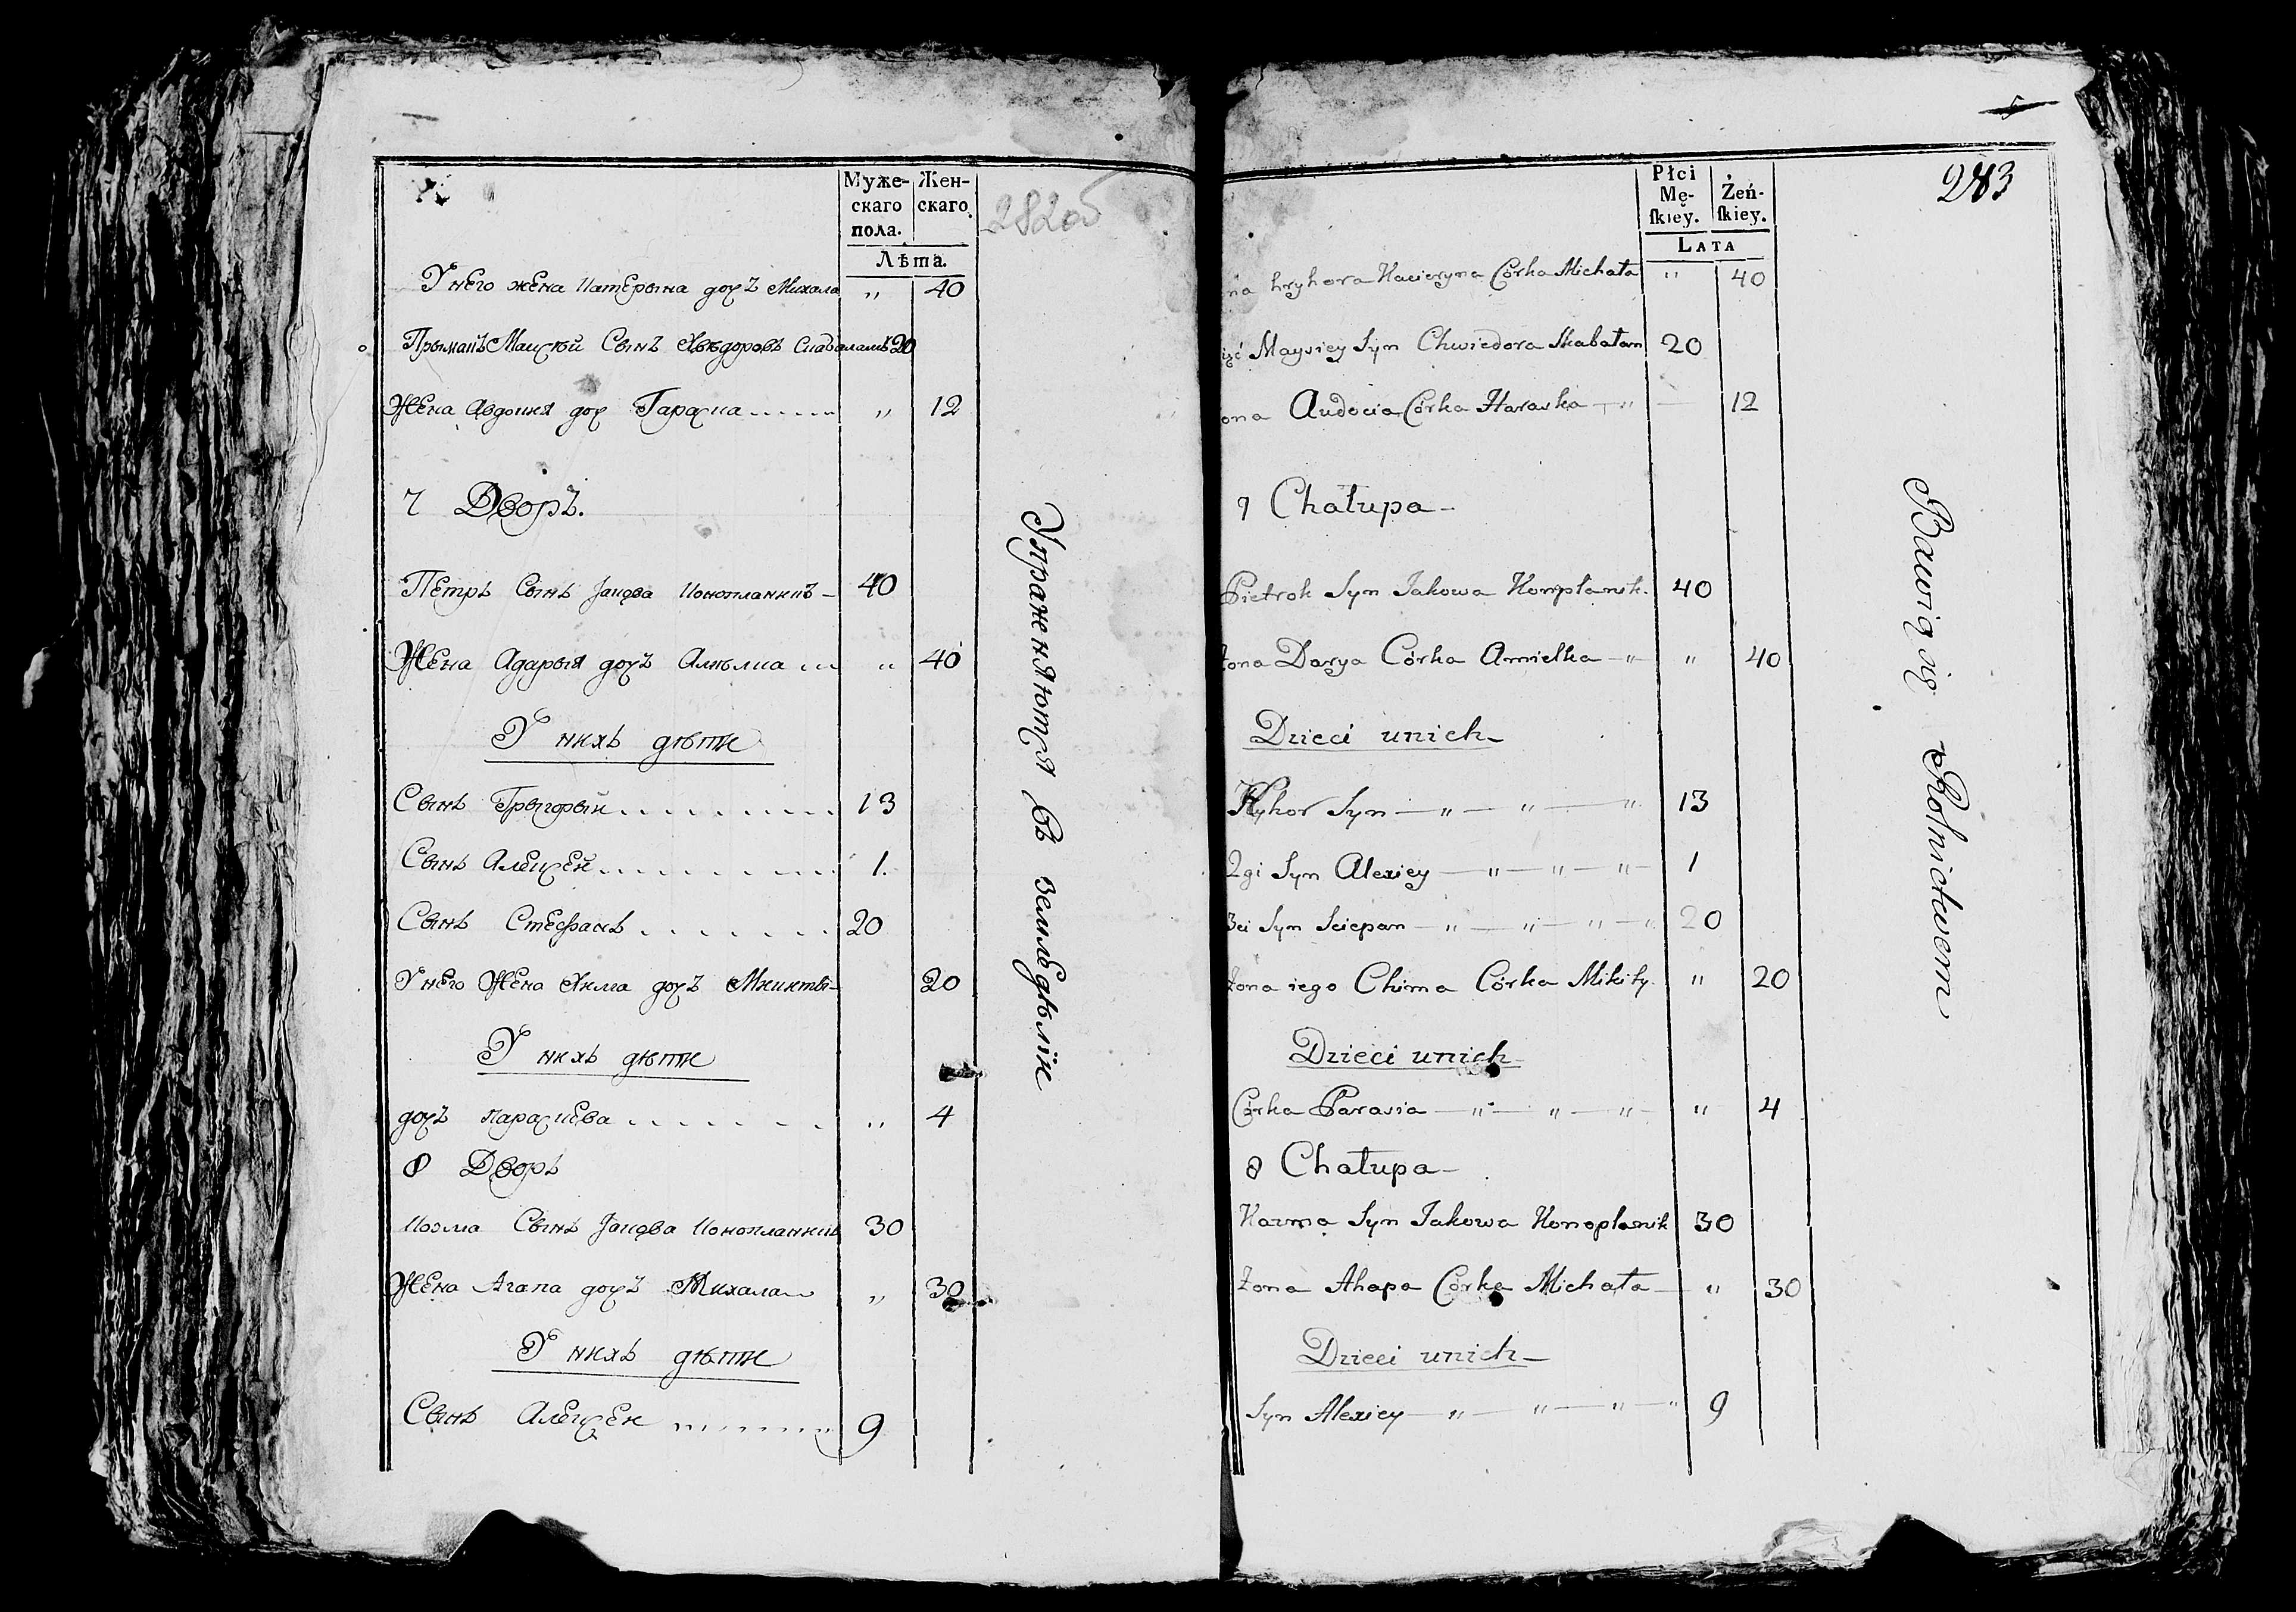 Муже-
скаго
пола.
Жен-
скаго.
Лѣта.
282об
У него жена Катерына доч Михала „ 40
Прыманъ Маисѣй Сынъ Хвѣдоровъ 20
Жена Авдоция доч Гараска „ 12
7 Дворъ.
Петръ Сынъ Јакова Конопланикъ 40
Жена Адарыя доч Амѣлка „ 40
У нихъ дѣти
Сынъ Грыгорый 13
Сынъ Алексей 1.
Сынъ Стефанъ 20
У него Жена Хима доч Микиты 20
У нихъ дѣти
доч парасцева „ 4
8 Дворъ
Козма Сынъ Јакова Конопланикъ 30
Жена Агапа доч Михала „ 30
У нихъ дѣти
Сынъ Алексей 9
Упражняются въ земледѣліи
283
Płci
Mę-
ſkiey.
Żeń-
ſkiey.
LATA
na hryhora Kacieryna Córka Michała „ 40
Maysiey Syn Chwiedora Skabałam 20
ona Audocia Córka Haraska 12
7 Chałupa
Pietrok Syn Jakowa Konopłanik. 40
żona Darya Córka Amielka „ 40
Dzieci unich
Hryhor Syn 13
2gi Syn Alexiey 1
3ci Syn Sciepan 20
żona iego Chima Córka Mikity „ 20
Dzieci unich
Córka Parasia „ 4
8 Chałupa
Kozma Syn Jakowa Konopłanik 30
żona Ahapa Córka Michała „ 30
Dzieci unich
Syn Alexiey 9
Bawią się Rolnictwem